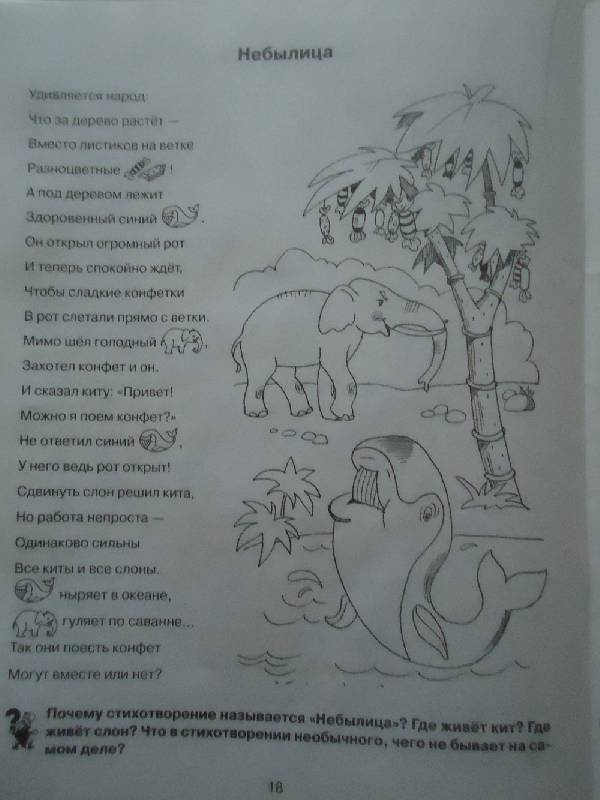 Небылица
Удивляется народ:
Что за дерево растёт —
Вместо листиков на ветке
Разноцветные !
А под деревом лежит
Здоровенный синий .
Он открыл огромный рот
И теперь спокойно ждёт,
Чтобы сладкие конфетки
В рот слетали прямо с ветки.
Мимо шёл голодный ,
Захотел конфет и он.
И сказал киту: «Привет!
Можно я поем конфет?»
Не ответил синий ,
У него ведь рот открыт!
Сдвинуть слон решил кита,
Но работа непроста —
Одинаково сильны
Все киты и все слоны.
ныряет в океане,
гуляет по саванне...
Так они поесть конфет
Могут вместе или нет?
Почему стихотворение называется «Небылица»? Где живёт кит? Где
живёт слон? Что в стихотворении необычного, чего не бывает на са-
мом деле?
18